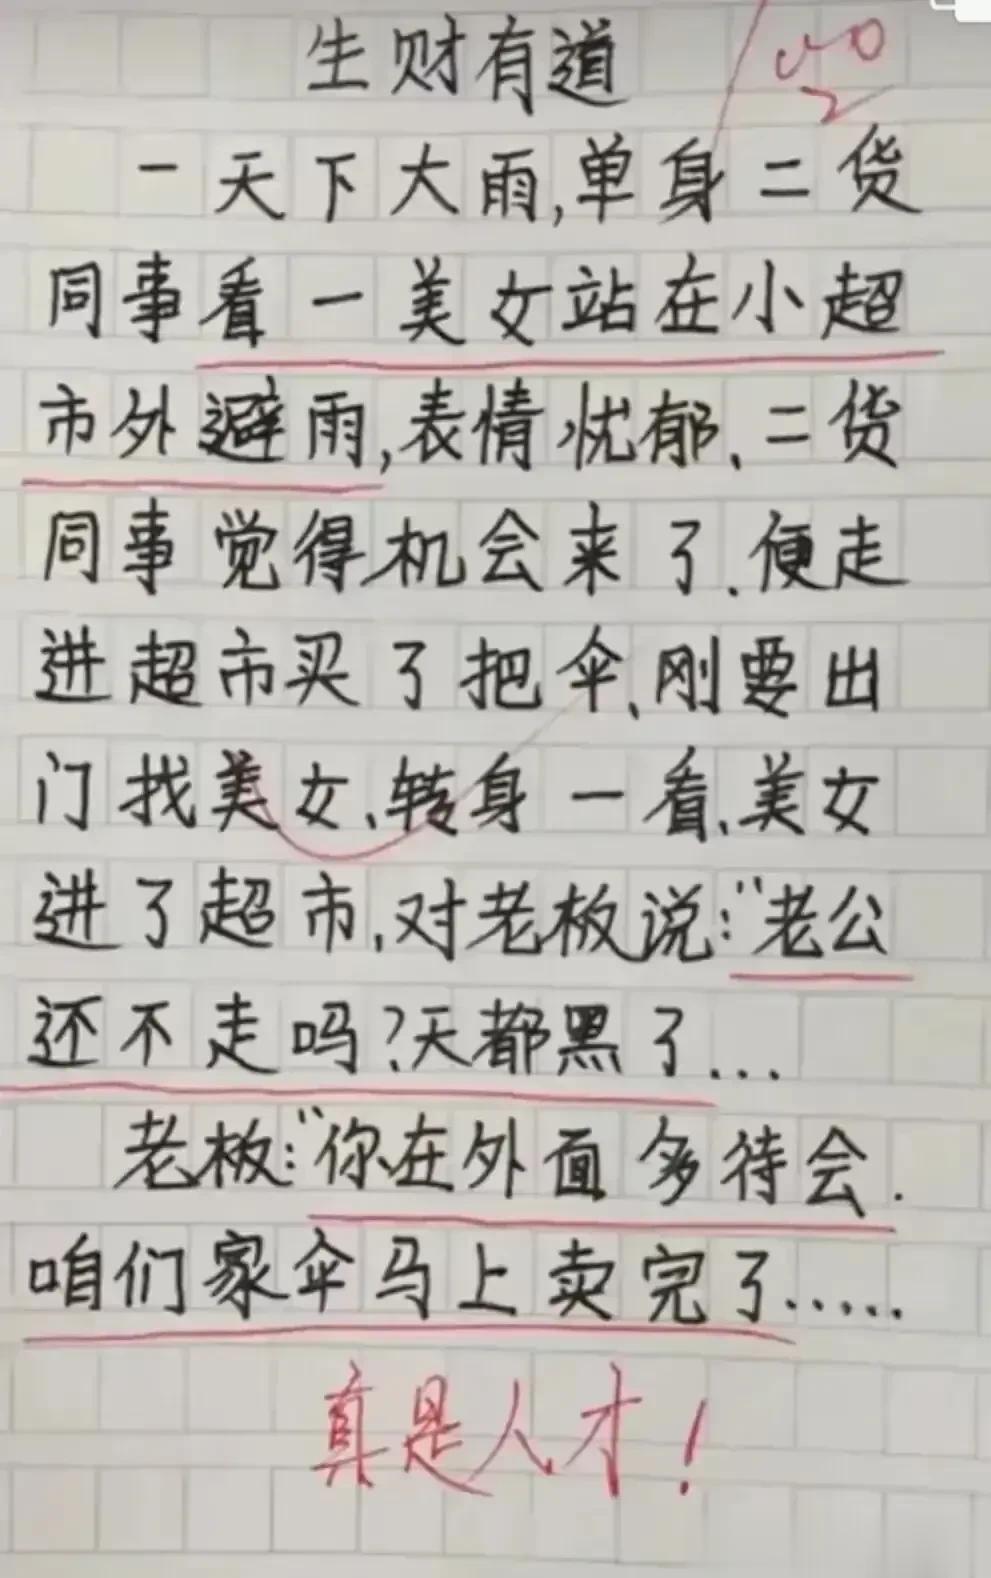 生财有道
一天下大雨,单身二货
同事看一美女站在小超
市外避雨,表情忧郁、二货
同事觉得机会来了、便走
进超市买了把伞、刚要出
门找美女、转身一看、美女
进了超市,对老板说:“老公
还不走吗?天都黑了...
老板:“你在外面多待会.
咱们家伞马上卖完了.....
真是人才!